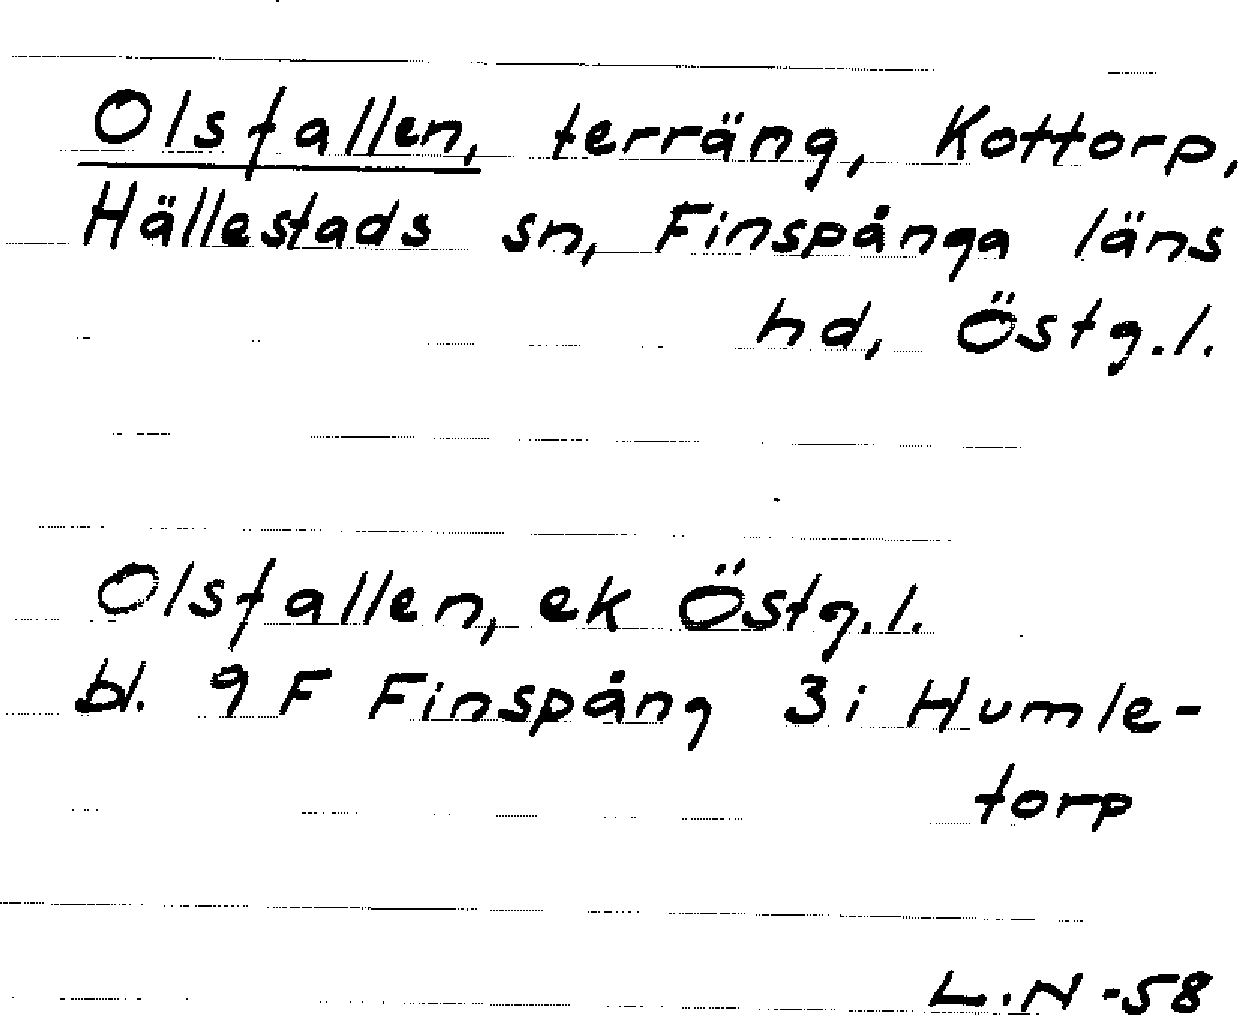 Olsfallen, terräng, Kottorp,
Hällestads sn, Finspånga läns
hd, Östg.l.
Olsfallen, ek Östg.l.
bl. 9 F Finspång 3i Humle-
torp
L.N -58